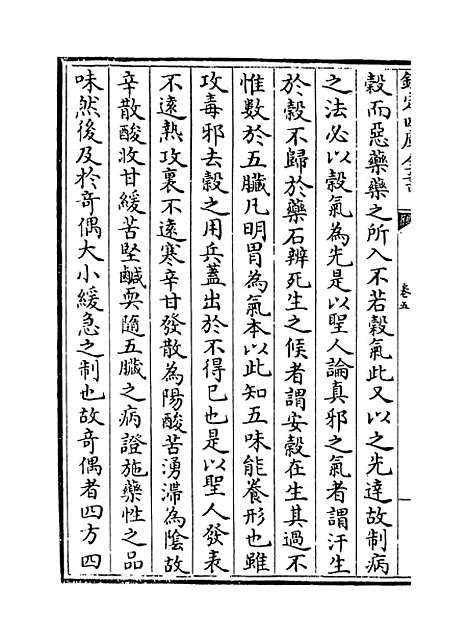 欽定四庫全書
卷五
穀而惡藥藥之所入不若穀氣此又以之先達故制病
之法必以穀氣為先是以聖人論真邪之氣者謂汗生
於穀不歸於藥石辨死生之候者謂安穀在生其過不
惟數於五臟凡明胃為氣本以此知五味能養形也雖
攻毒邪去穀之用兵蓋出於不得已也是以聖人發表
不遠熱攻裏不遠寒辛甘發散為陽酸苦湧滯為隂故
辛散酸收甘緩苦堅鹹耎隨五臟之病證施藥性之品
味然後及於奇偶大小緩急之制也故奇偶者四方四